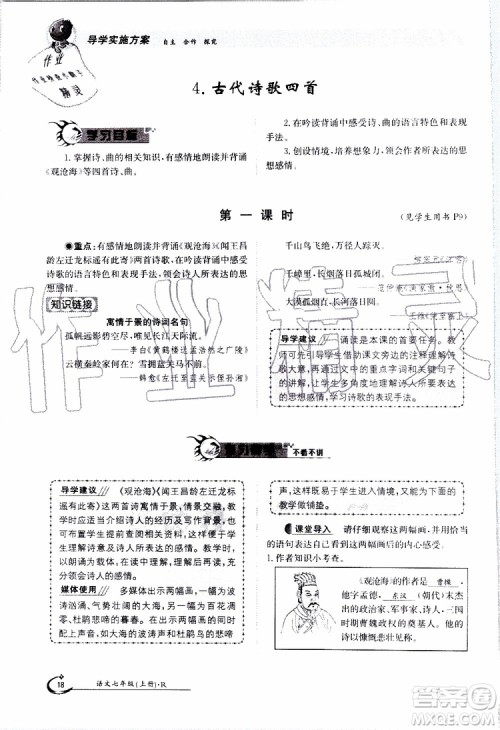 导学实施方案 自主 合作 探究
4. 古代诗歌四首
学习目标
1. 掌握诗、曲的相关知识,有感情地朗读并背诵
《观沧海》等四首诗。
2. 在吟读背诵中感受诗、曲的语言特色和表现
手法。
3. 创设情境,培养想象力,体会诗人所要表达的思想
感情。
第一课时
(见学生用书 P9)
●重点:有感情地朗读并背诵《观沧海》《闻王昌
龄左迁龙标遥有此寄》两首诗歌,在吟读背诵中感受
诗歌的语言特色和表现手法,体会诗人所要表达的思
想感情。
知识链接
寓情于景的诗词名句
孤帆远影碧空尽,唯见长江天际流。
——李白《黄鹤楼送孟浩然之广陵》
云横秦岭家何在?雪拥蓝关马不前。
——韩愈《左迁至蓝关示侄孙湘》
千山鸟飞绝,万径人踪灭。
千嶂里,长烟落日孤城闭。
大漠孤烟直,长河落日圆。
导学建议 诵读是本课的首要任务。教
师可引导学生借助课文旁边的注释了解诗
歌大意,再通过有针对性地品味字词和关键
句子的讲解,最大程度地理解诗人所要表达的
思想感情,学习诗歌的表现手法。
不看不讲
导学建议 《观沧海》《闻王昌龄左迁龙标
遥有此寄》两首诗,诗人都在诗中寓情于景。
教师在课前可布置学生预习作者及写作背
景,并查阅相关资料,了解写作背景。教学时,
应以学生自主学习为主,可采取诵读感悟法。
媒体使用 多媒体演示两幅画,一幅为波
涛汹涌、气势壮阔的大海,另一幅为百花凋
零、杜鹃悲啼的暮春。演示两幅画的同时,分
别加以大海的波涛声和杜鹃鸟的悲啼声为伴
声,这样既易于学生进入情境,也能让学生直接
感受。
课堂导入 请仔细观察这两幅画,用自己
的语句表达出你看到这两幅画后的内心感受。
1. 作者知识小考查。
《观沧海》作者 曹操 ,
东汉 (朝代)末杰出
政治家、军事家、诗人,三国
时期曹魏政权的奠基人。他
的诗慷慨悲壮。
18 语文七年级(上册)·R